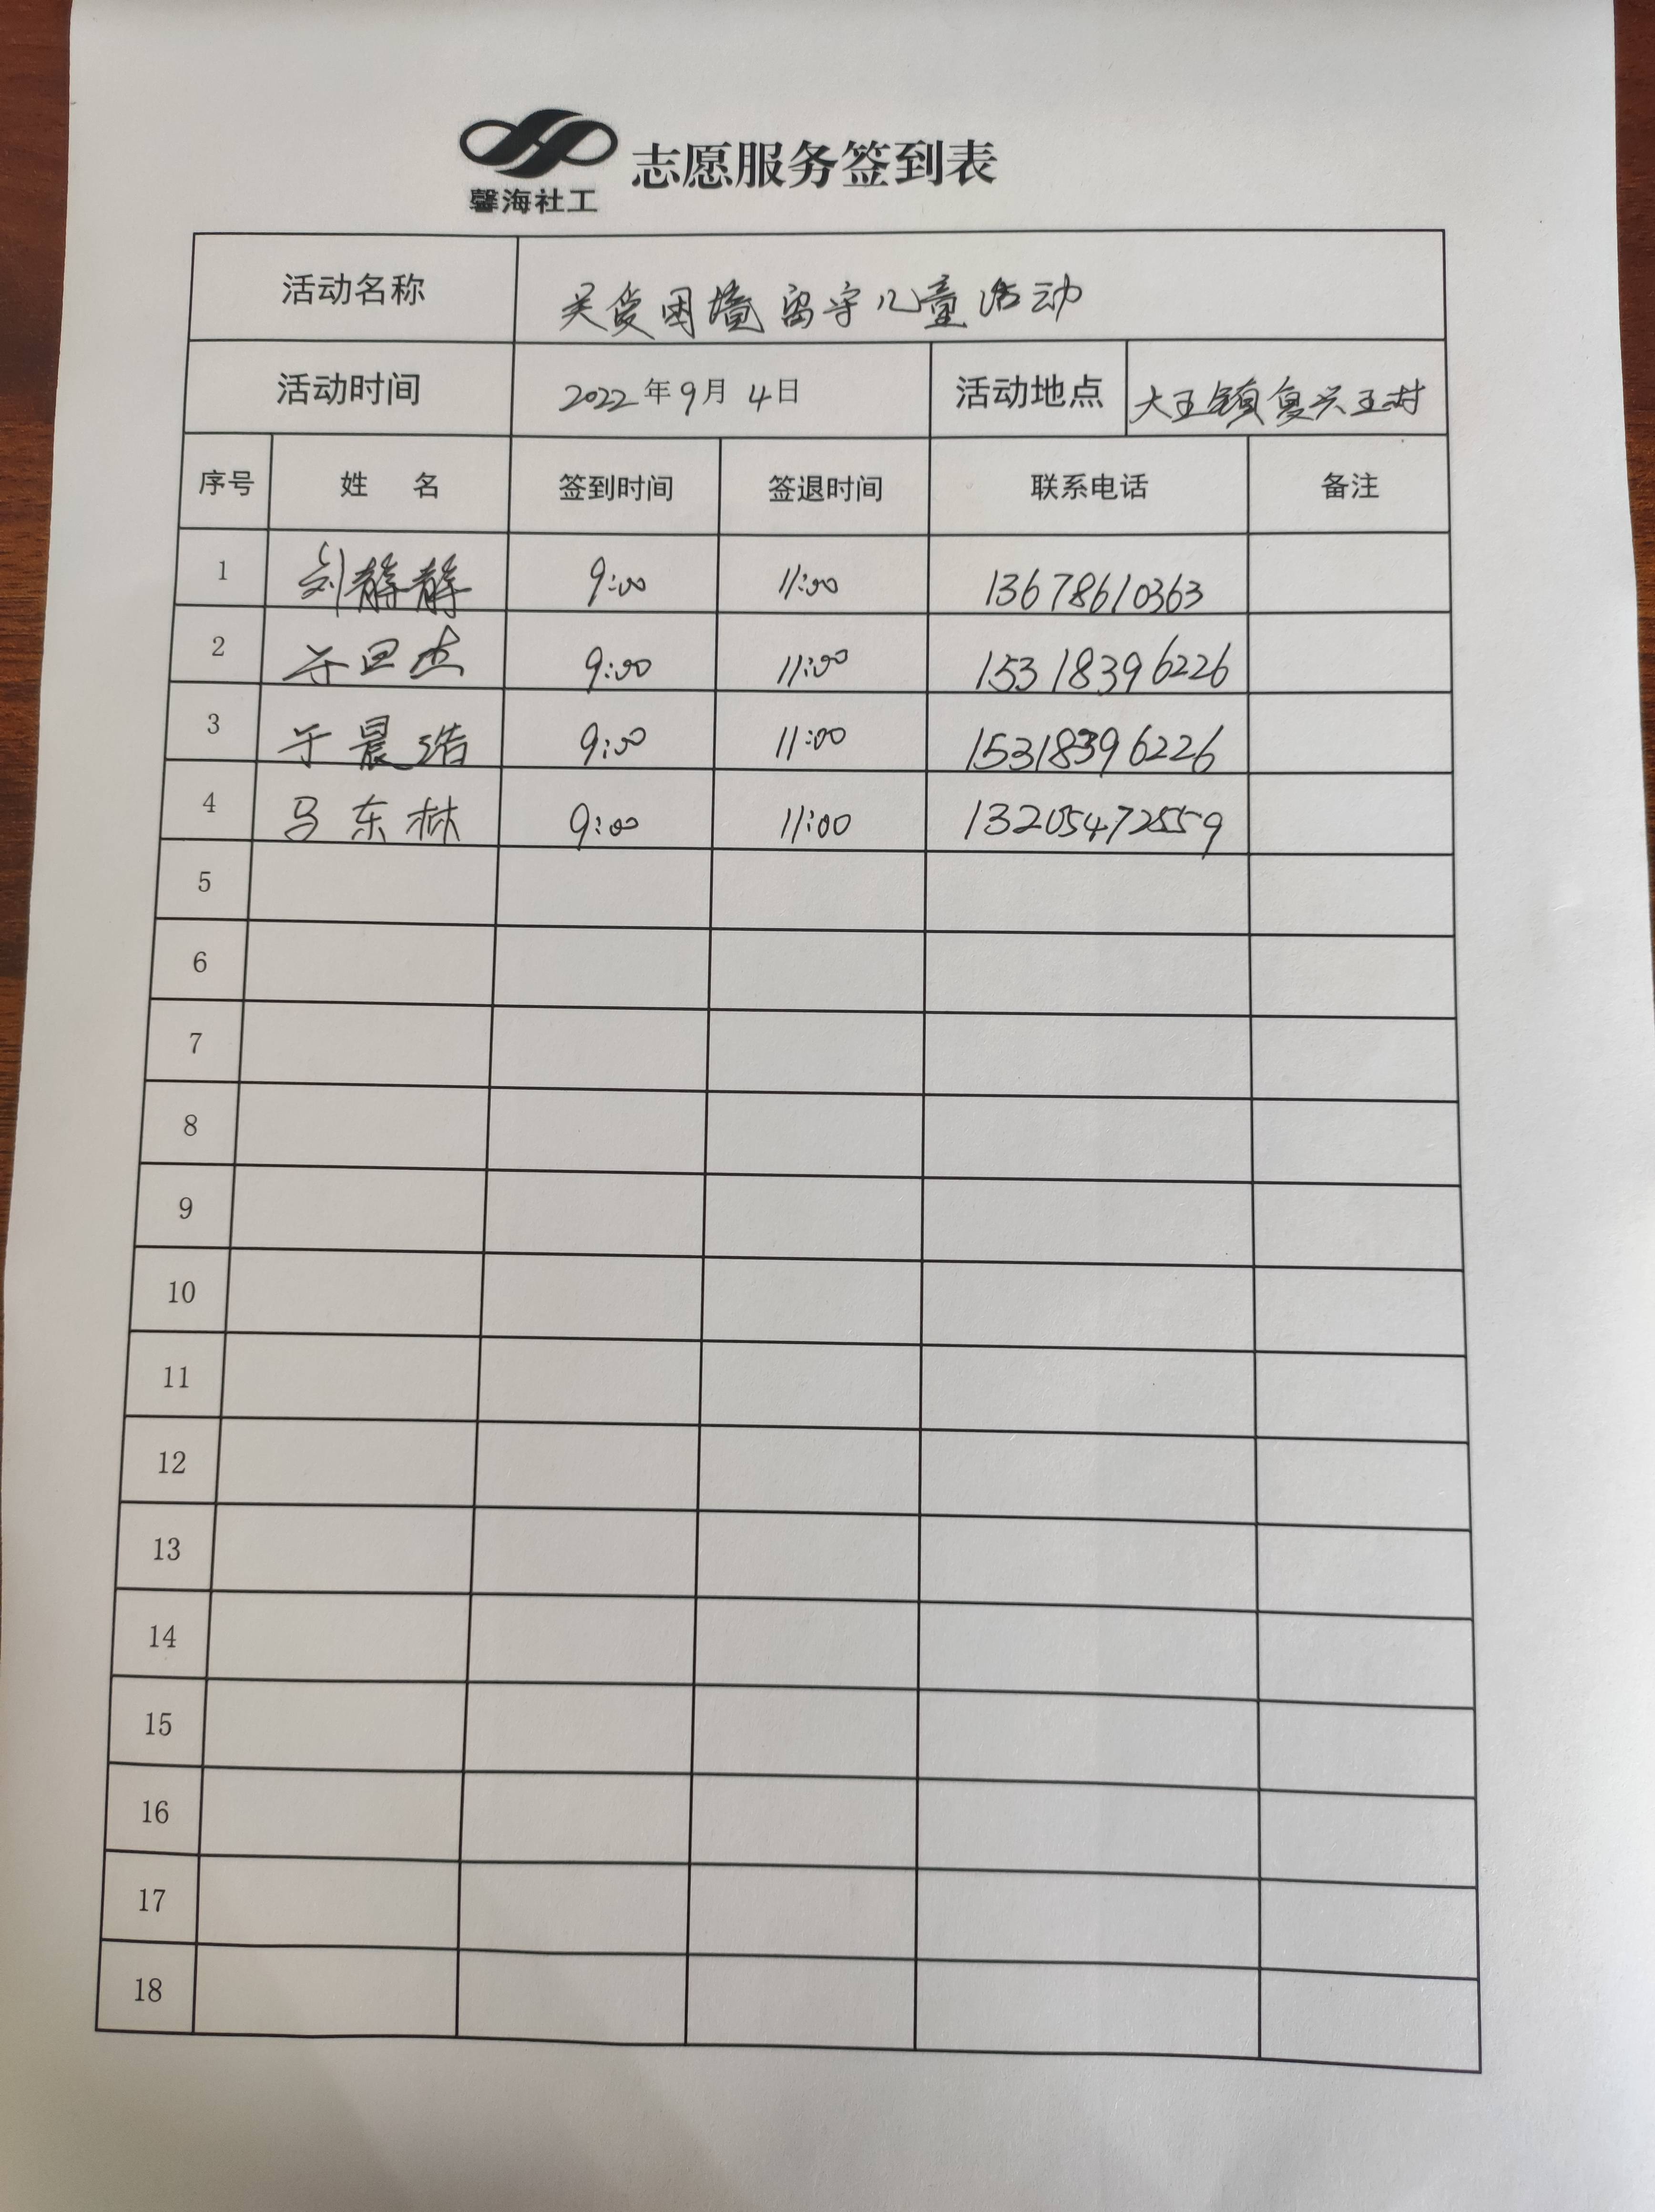 馨海社工 志愿服务签到表
活动名称 关爱困境留守儿童活动
活动时间 2022年9月4日 活动地点 大王镇复兴王村
序号 姓 名 签到时间 签退时间 联系电话 备注
1 刘静静 9:00 11:00 13678610363
2 于 杰 9:00 11:00 15318396226
3 于晨浩 9:00 11:00 15318396226
4 马东林 9:00 11:00 13205472559
5
6
7
8
9
10
11
12
13
14
15
16
17
18